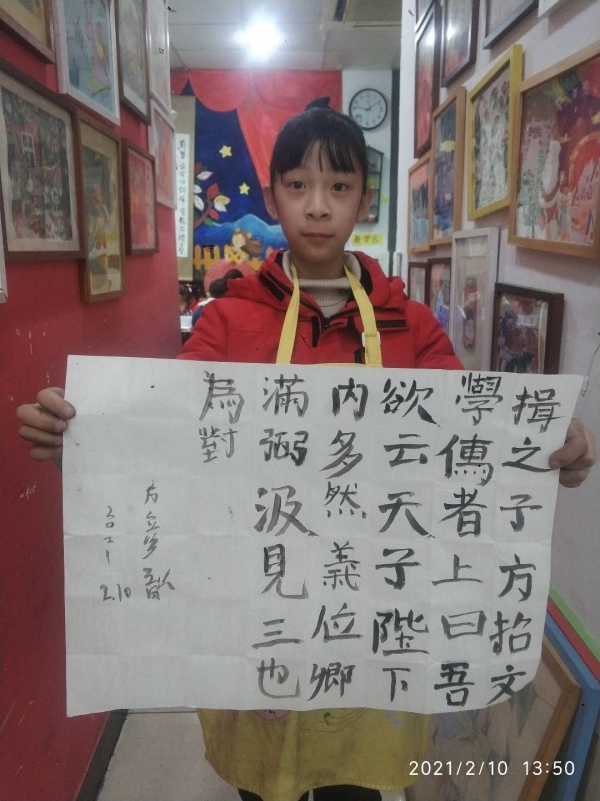 揖之子方招文
學傳者上曰吾
欲云天子陛下
内多然義位卿
滿弼汲見三也
為對
二〇二一
2.10
2021/2/10 13:50